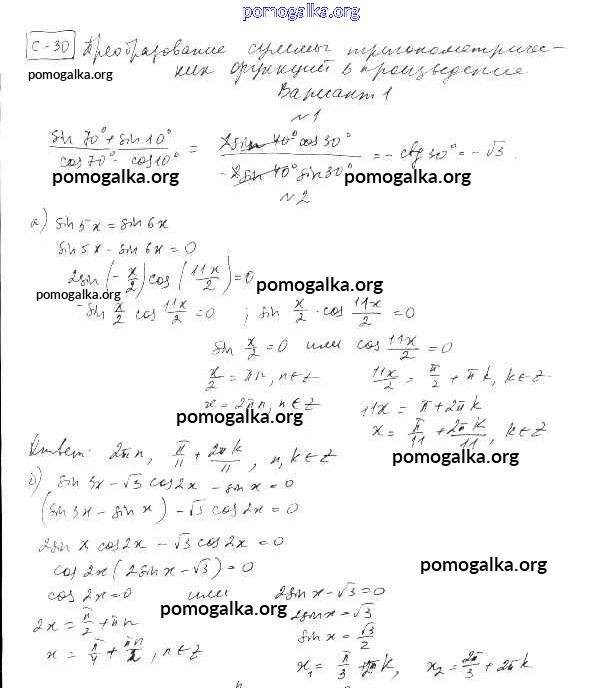 pomogalka.org
С-30 Преобразование суммы тригонометричес-
ких функций в произведение
pomogalka.org
Вариант 1
N1
(sin 70° + sin 10°)/(cos 70° - cos 10°) = (2 sin 40° cos 30°)/(-2 sin 40° sin 30°) = -ctg 30° = -√3.
pomogalka.org pomogalka.org
N2
а) sin 5x = sin 6x
sin 5x - sin 6x = 0
2 sin (-x/2) cos (11x/2) = 0
pomogalka.org pomogalka.org
-sin x/2 cos 11x/2 = 0 ; sin x/2 · cos 11x/2 = 0
sin x/2 = 0 или cos 11x/2 = 0
x/2 = πn, n∈Z 11x/2 = π/2 + πk, k∈Z
x = 2πn, n∈Z 11x = π + 2πk
pomogalka.org
x = π/11 + 2πk/11, k∈Z
Ответ: 2πn, π/11 + 2πk/11, n, k∈Z
pomogalka.org
б) sin 3x - √3 cos 2x - sin x = 0
(sin 3x - sin x) - √3 cos 2x = 0
2 sin x cos 2x - √3 cos 2x = 0
cos 2x (2 sin x - √3) = 0
pomogalka.org
cos 2x = 0 или 2 sin x - √3 = 0
pomogalka.org
2x = π/2 + πn 2 sin x = √3
sin x = √3/2
x = π/4 + πn/2, n∈Z
x₁ = π/3 + 2πk, x₂ = 2π/3 + 2πk
pomogalka.org